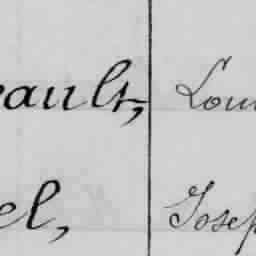 eault, Loui
el, Josep